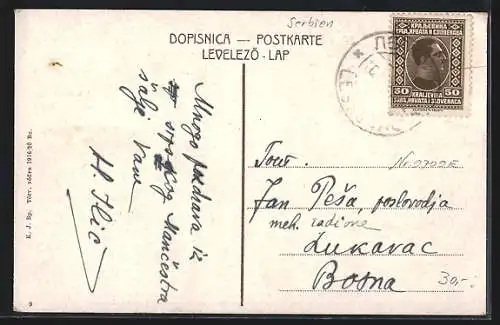 Serbien
DOPISNICA — POSTKARTE
LEVELEZŐ-LAP
КРАЉЕВИНА
СРБА, ХРВАТА И СЛОВЕНАЦА
50 50
KRALJEVINA
SRBA, HRVATA I SLOVENACA
Mnogo pozdrava iz
srpskog Mančestra
šalje Vam
H. Ilić
Tour.
Jan Peša, poslovodja
meh. radione
Lukavac
Bosna
30,-
9